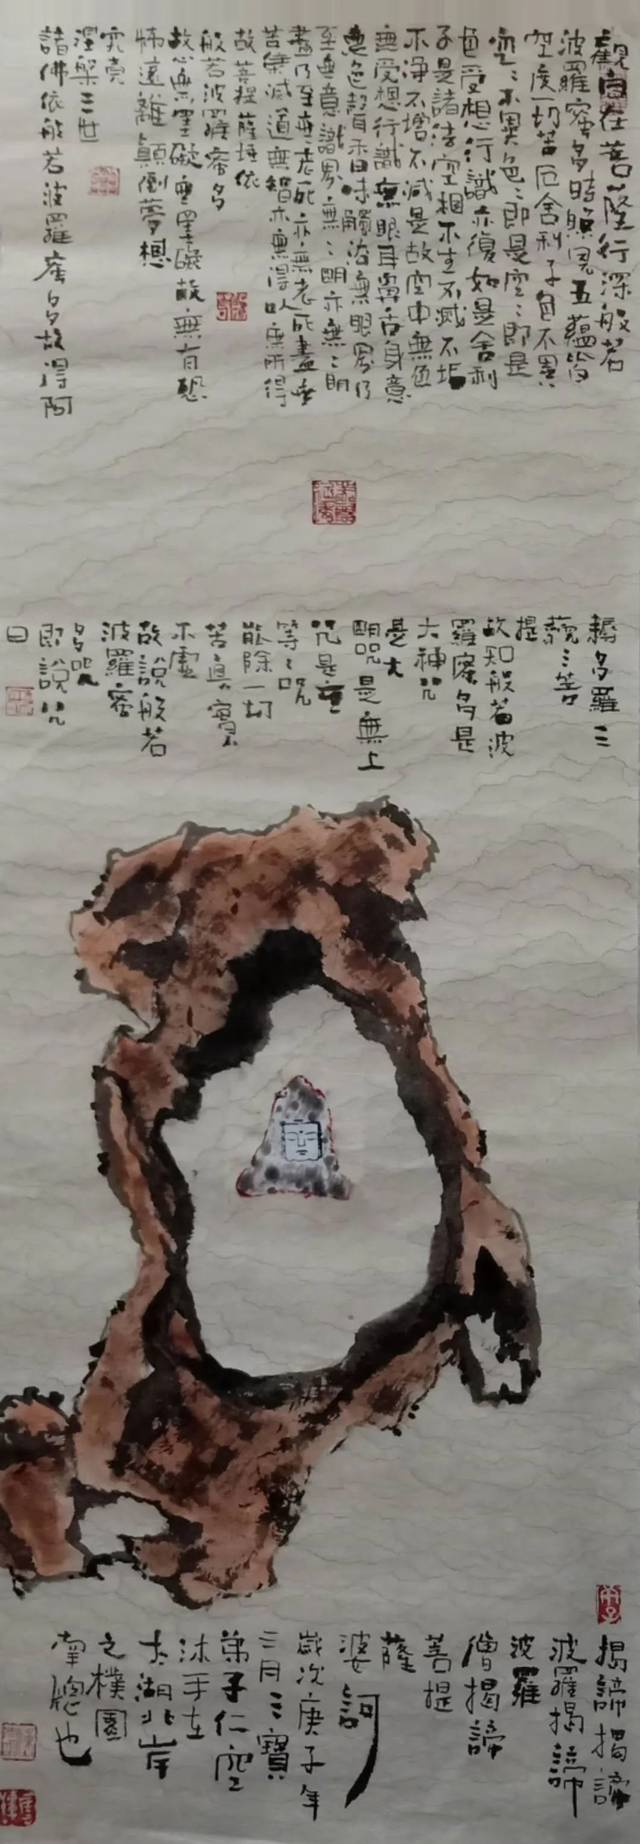 觀自在菩薩行深般若
波羅蜜多時照見五蘊皆
空度一切苦厄舍利子色不異
空空不異色色即是空空即是
色受想行識亦復如是舍利
子是諸法空相不生不滅不垢
不淨不增不減是故空中無色
無受想行識無眼耳鼻舌身意
無色聲香味觸法無眼界乃
至無意識界無無明亦無無明
盡乃至無老死亦無老死盡無
苦集滅道無智亦無得以無所得
故菩提薩埵依
般若波羅蜜多
故心無罣礙無罣礙故無有恐
怖遠離顛倒夢想
究竟
涅槃三世
諸佛依般若波羅蜜多故得阿
耨多羅三
藐三菩
提
故知般若波
羅蜜多是
大神咒
是大
明咒是無上
咒是無
等等咒
能除一切
苦真實
不虛
故說般若
波羅蜜
多咒
即說咒
曰
揭諦揭諦
波羅揭諦
波羅
僧揭諦
菩提
薩
婆訶
歲次庚子年
三月三寶
弟子仁空
沐手在
太湖北岸
之樸園
南窗也